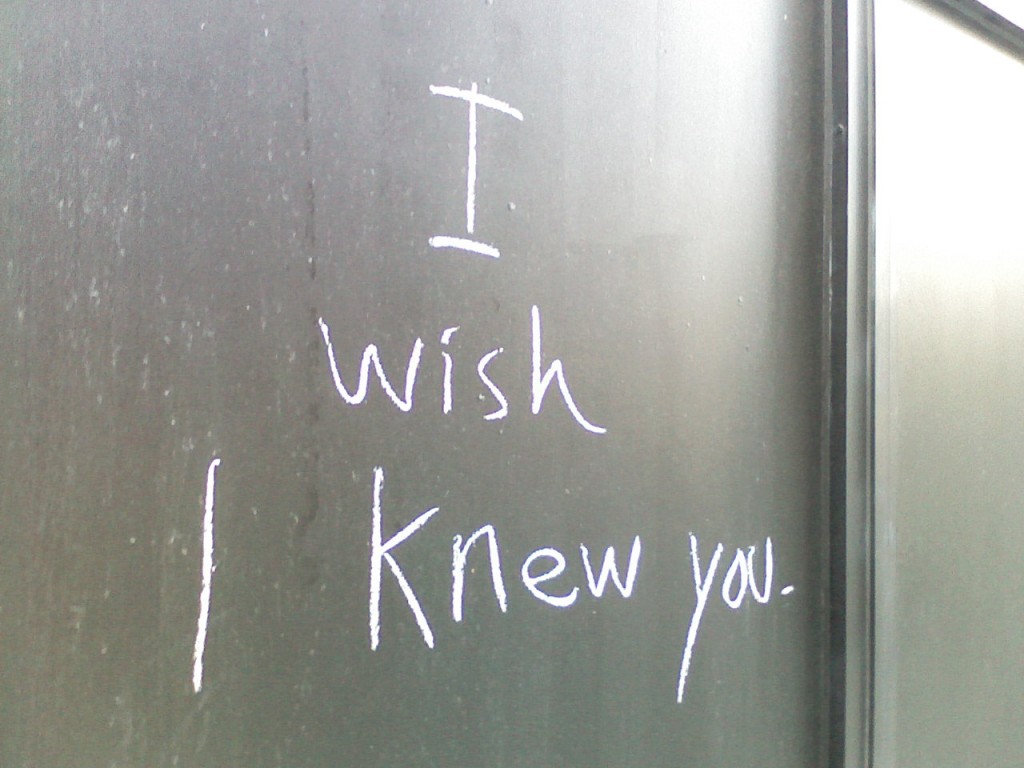 I
wish
I knew you.